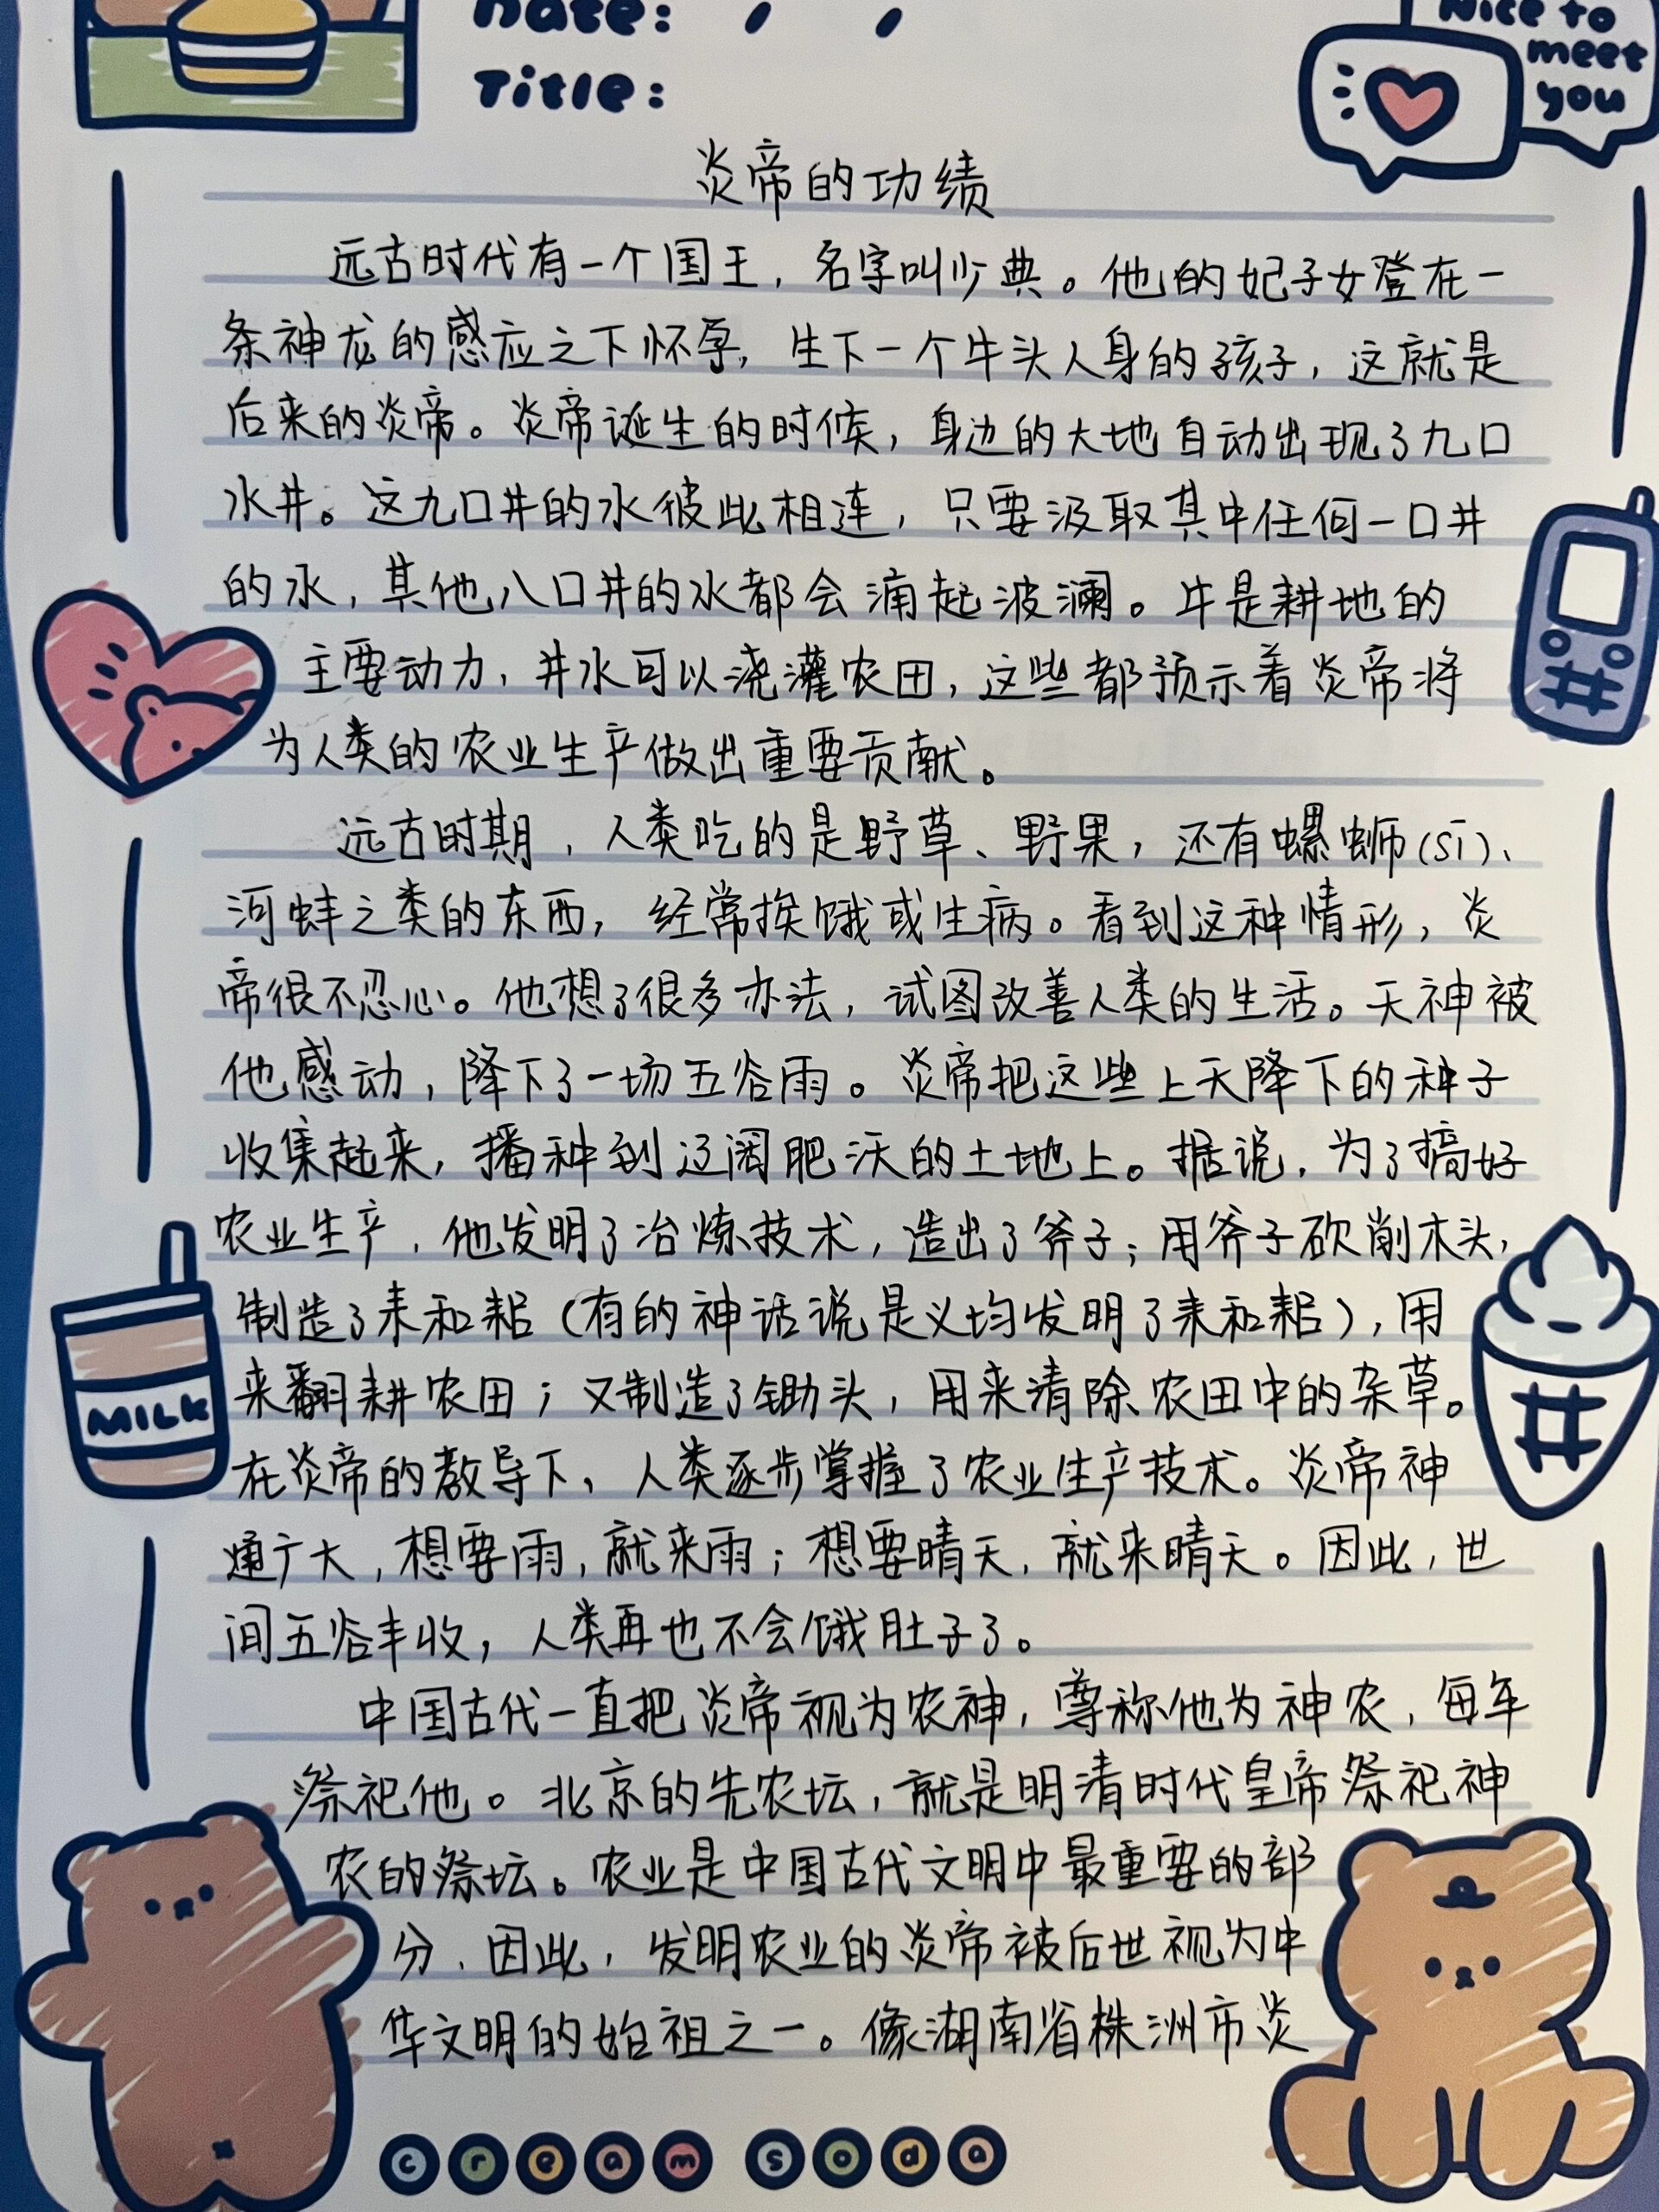 Date: / /
Title:
Nice to
meet
you
炎帝的功绩
远古时代有一个国王，名字叫少典。他的妃子女登在一
条神龙的感应之下怀孕，生下一个牛头人身的孩子，这就是
后来的炎帝。炎帝诞生的时候，身边的大地自动出现了九口
水井。这九口井的水彼此相连，只要汲取其中任何一口井
的水，其他八口井的水都会涌起波澜。牛是耕地的
主要动力，井水可以浇灌农田，这些都预示着炎帝将
为人类的农业生产做出重要贡献。
远古时期，人类吃的是野草、野果，还有螺蛳(sī)、
河蚌之类的东西，经常挨饿或生病。看到这种情形，炎
帝很不忍心。他想了很多办法，试图改善人类的生活。天神被
他感动，降下了一场五谷雨。炎帝把这些上天降下的种子
收集起来，播种到辽阔肥沃的土地上。据说，为了搞好
农业生产，他发明了冶炼技术，造出了斧子；用斧子砍削木头，
制造了耒和耜（有的神话说是义均发明了耒和耜），用
来翻耕农田；又制造了锄头，用来清除农田中的杂草。
在炎帝的教导下，人类逐步掌握了农业生产技术。炎帝神
通广大，想要雨，就来雨；想要晴天，就来晴天。因此，世
间五谷丰收，人类再也不会饿肚子了。
中国古代一直把炎帝视为农神，尊称他为神农，每年
祭祀他。北京的先农坛，就是明清时代皇帝祭祀神
农的祭坛。农业是中国古代文明中最重要的部
分，因此，发明农业的炎帝被后世视为中
华文明的始祖之一。像湖南省株洲市炎
MILK
cream soda